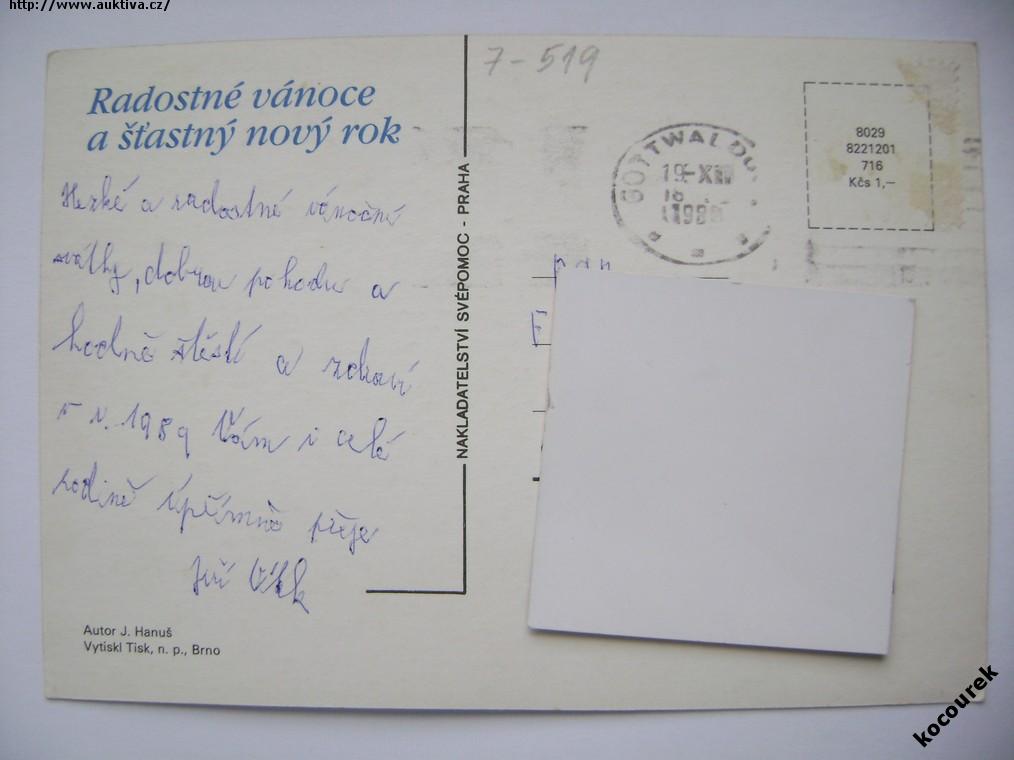 http://www.auktiva.cz/
7-519
Radostné vánoce
a šťastný nový rok
Hezké a radostné vánoční
svátky, dobrou pohodu a
hodně štěstí a zdraví
v r. 1989 Vám i celé
rodině upřímně přeje
Jiří
Autor J. Hanuš
Vytiskl Tisk, n. p., Brno
NAKLADATELSTVÍ SVÉPOMOC - PRAHA
GOTTWALDOV
19.-XII
18
1988
8029
8221201
716
Kčs 1,—
pan
kocourek